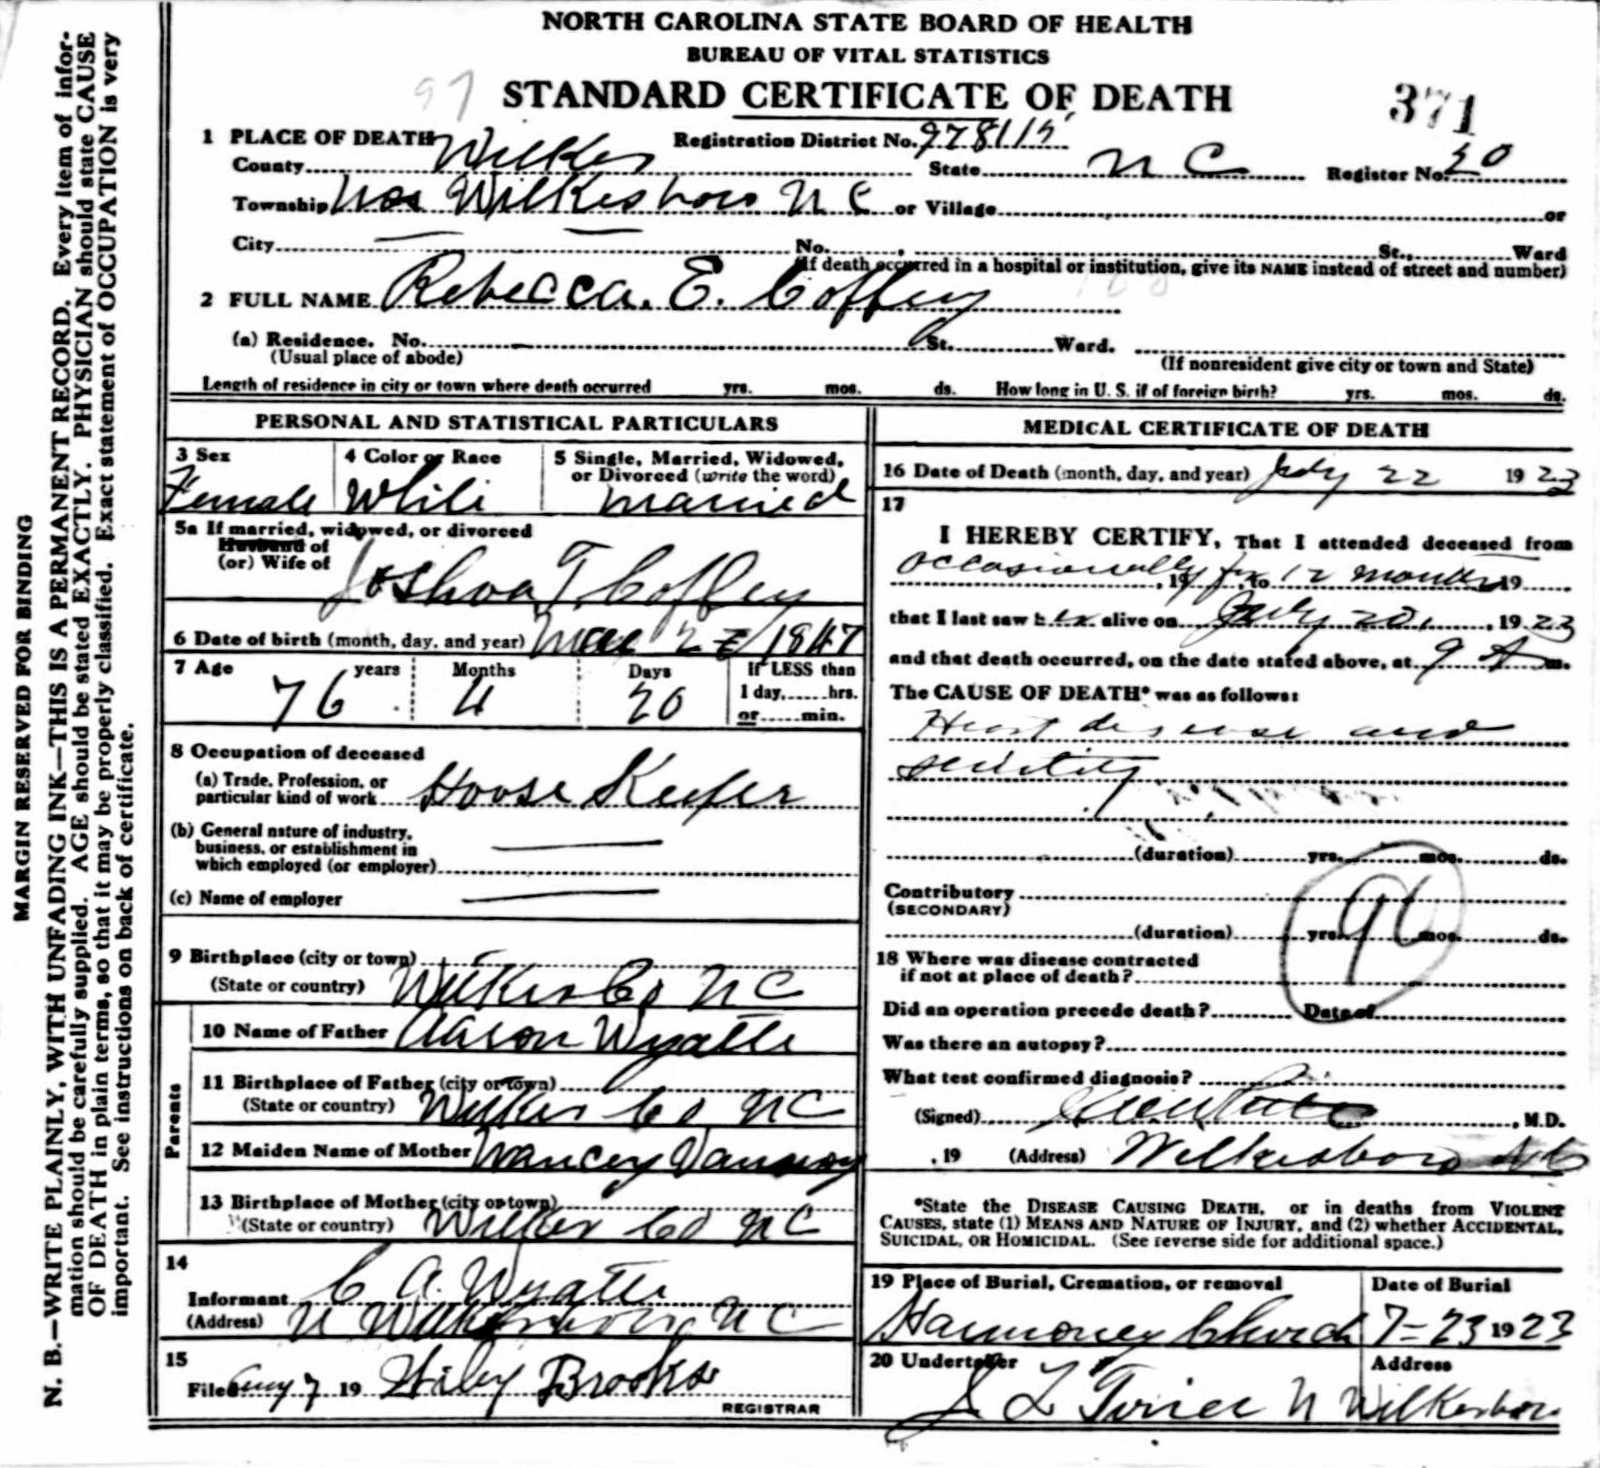 NORTH CAROLINA STATE BOARD OF HEALTH
BUREAU OF VITAL STATISTICS
97
STANDARD CERTIFICATE OF DEATH
371
1 PLACE OF DEATH
Registration District No. 978115
County Wilkes State N C Register No. 20
Township Wilkesboro N C or Village or
City No. St., Ward
(If death occurred in a hospital or institution, give its NAME instead of street and number)
2 FULL NAME Rebecca. E. Coffey
(a) Residence. No. St. Ward.
(Usual place of abode) (If nonresident give city or town and State)
Length of residence in city or town where death occurred yrs. mos. ds. How long in U. S. if of foreign birth? yrs. mos. ds.
PERSONAL AND STATISTICAL PARTICULARS
3 Sex 4 Color or Race 5 Single, Married, Widowed,
or Divorced (write the word)
Female White Married
5a If married, widowed, or divorced
Husband of
(or) Wife of Joshua T. Coffey
6 Date of birth (month, day, and year) 1847
7 Age years Months Days If LESS than
76 4 20 1 day, hrs.
or min.
8 Occupation of deceased
(a) Trade, Profession, or
particular kind of work House Keeper
(b) General nature of industry,
business, or establishment in
which employed (or employer)
(c) Name of employer
9 Birthplace (city or town)
(State or country) Wilkes Co N C
Parents
10 Name of Father Aaron Wyatte
11 Birthplace of Father (city or town)
(State or country) Wilkes Co N C
12 Maiden Name of Mother Nancey Vannoy
13 Birthplace of Mother (city or town)
(State or country) Wilkes Co N C
14
Informant C A. Wyatte
(Address) N Wilkesboro N C
15
Filed Aug 7 19 Wiley Brooks
REGISTRAR
MEDICAL CERTIFICATE OF DEATH
16 Date of Death (month, day, and year) July 22 1923
17
I HEREBY CERTIFY, That I attended deceased from
occasionally, 19 for to 12 months 19
that I last saw her alive on July 20, 1923
and that death occurred, on the date stated above, at 9 A m.
The CAUSE OF DEATH* was as follows:
Heart disease and
senility
(duration) yrs. mos. ds.
Contributory
(SECONDARY)
(duration) yrs. mos. ds.
18 Where was disease contracted
if not at place of death?
Did an operation precede death? Date of
Was there an autopsy?
What test confirmed diagnosis?
(Signed) , M.D.
, 19 (Address) Wilkesboro N C
*State the DISEASE CAUSING DEATH, or in deaths from VIOLENT
CAUSES, state (1) MEANS AND NATURE OF INJURY, and (2) whether ACCIDENTAL,
SUICIDAL, OR HOMICIDAL. (See reverse side for additional space.)
19 Place of Burial, Cremation, or removal Date of Burial
Harmoney Church 7-23 1923
20 Undertaker Address
N Wilkesboro
MARGIN RESERVED FOR BINDING
N. B.—WRITE PLAINLY, WITH UNFADING INK—THIS IS A PERMANENT RECORD. Every item of infor-
mation should be carefully supplied. AGE should be stated EXACTLY. PHYSICIAN should state CAUSE
OF DEATH in plain terms, so that it may be properly classified. Exact statement of OCCUPATION is very
important. See instructions on back of certificate.